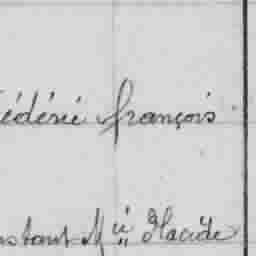 édéric françois
nstant Mie Placide